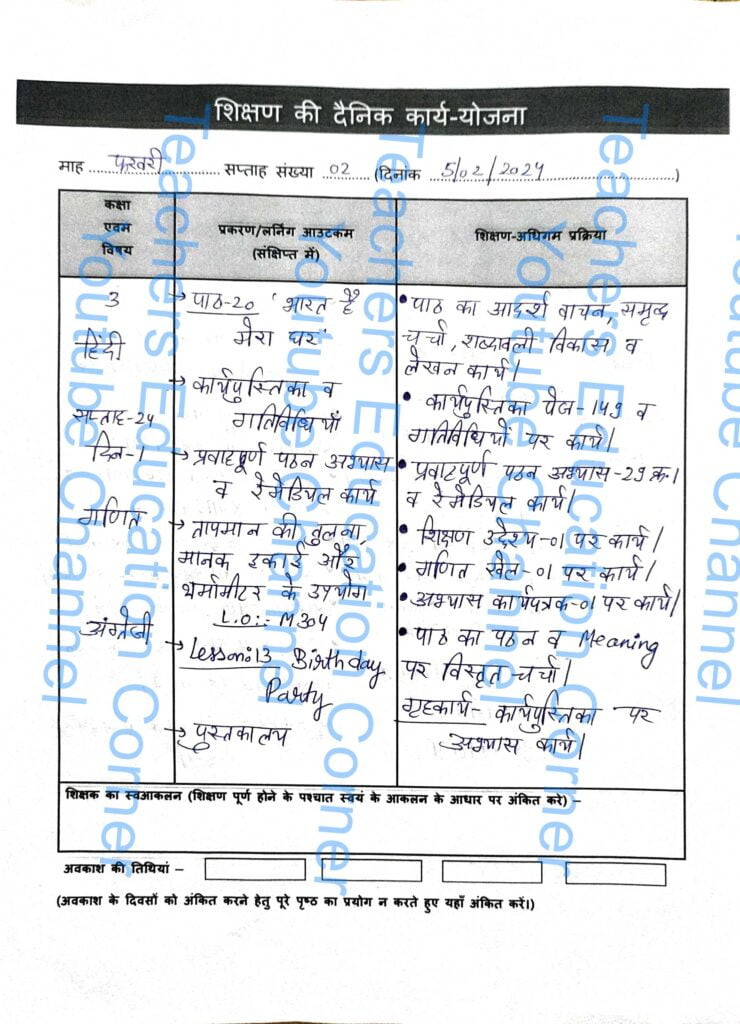 शिक्षण की दैनिक कार्य-योजना
माह फरवरी सप्ताह संख्या 02 (दिनांक 5/02/2024)
कक्षा
एवम
विषय
प्रकरण/लर्निंग आउटकम
(संक्षिप्त में)
शिक्षण-अधिगम प्रक्रिया
3
हिंदी
सप्ताह-24
दिन-1
गणित
अंग्रेजी
→ पाठ-20 'भारत है
मेरा घर'
→ कार्यपुस्तिका व
गतिविधियाँ
→ प्रवाहपूर्ण पठन अभ्यास
व रेमेडियल कार्य
→ तापमान की तुलना,
मानक इकाई और
थर्मामीटर के उपयोग
L.O:- M304
→ Lesson:13 Birthday
Party
→ पुस्तकालय
• पाठ का आदर्श वाचन, समृद्ध
चर्चा, शब्दावली विकास व
लेखन कार्य।
• कार्यपुस्तिका पेज-149 व
गतिविधियों पर कार्य।
• प्रवाहपूर्ण पठन अभ्यास-29 क्र।
व रेमेडियल कार्य।
• शिक्षण उद्देश्य-01 पर कार्य।
• गणित खेल-01 पर कार्य।
• अभ्यास कार्यपत्रक-01 पर कार्य।
• पाठ का पठन व Meaning
पर विस्तृत चर्चा।
गृहकार्य- कार्यपुस्तिका पर
अभ्यास कार्य।
शिक्षक का स्वआकलन (शिक्षण पूर्ण होने के पश्चात स्वयं के आकलन के आधार पर अंकित करे) –
अवकाश की तिथियां –
(अवकाश के दिवसों को अंकित करने हेतु पूरे पृष्ठ का प्रयोग न करते हुए यहाँ अंकित करें।)
Teachers Education Corner
Youtube Channel
Teachers Education Corner
Youtube Channel
Teachers Education Corner
Youtube Channel